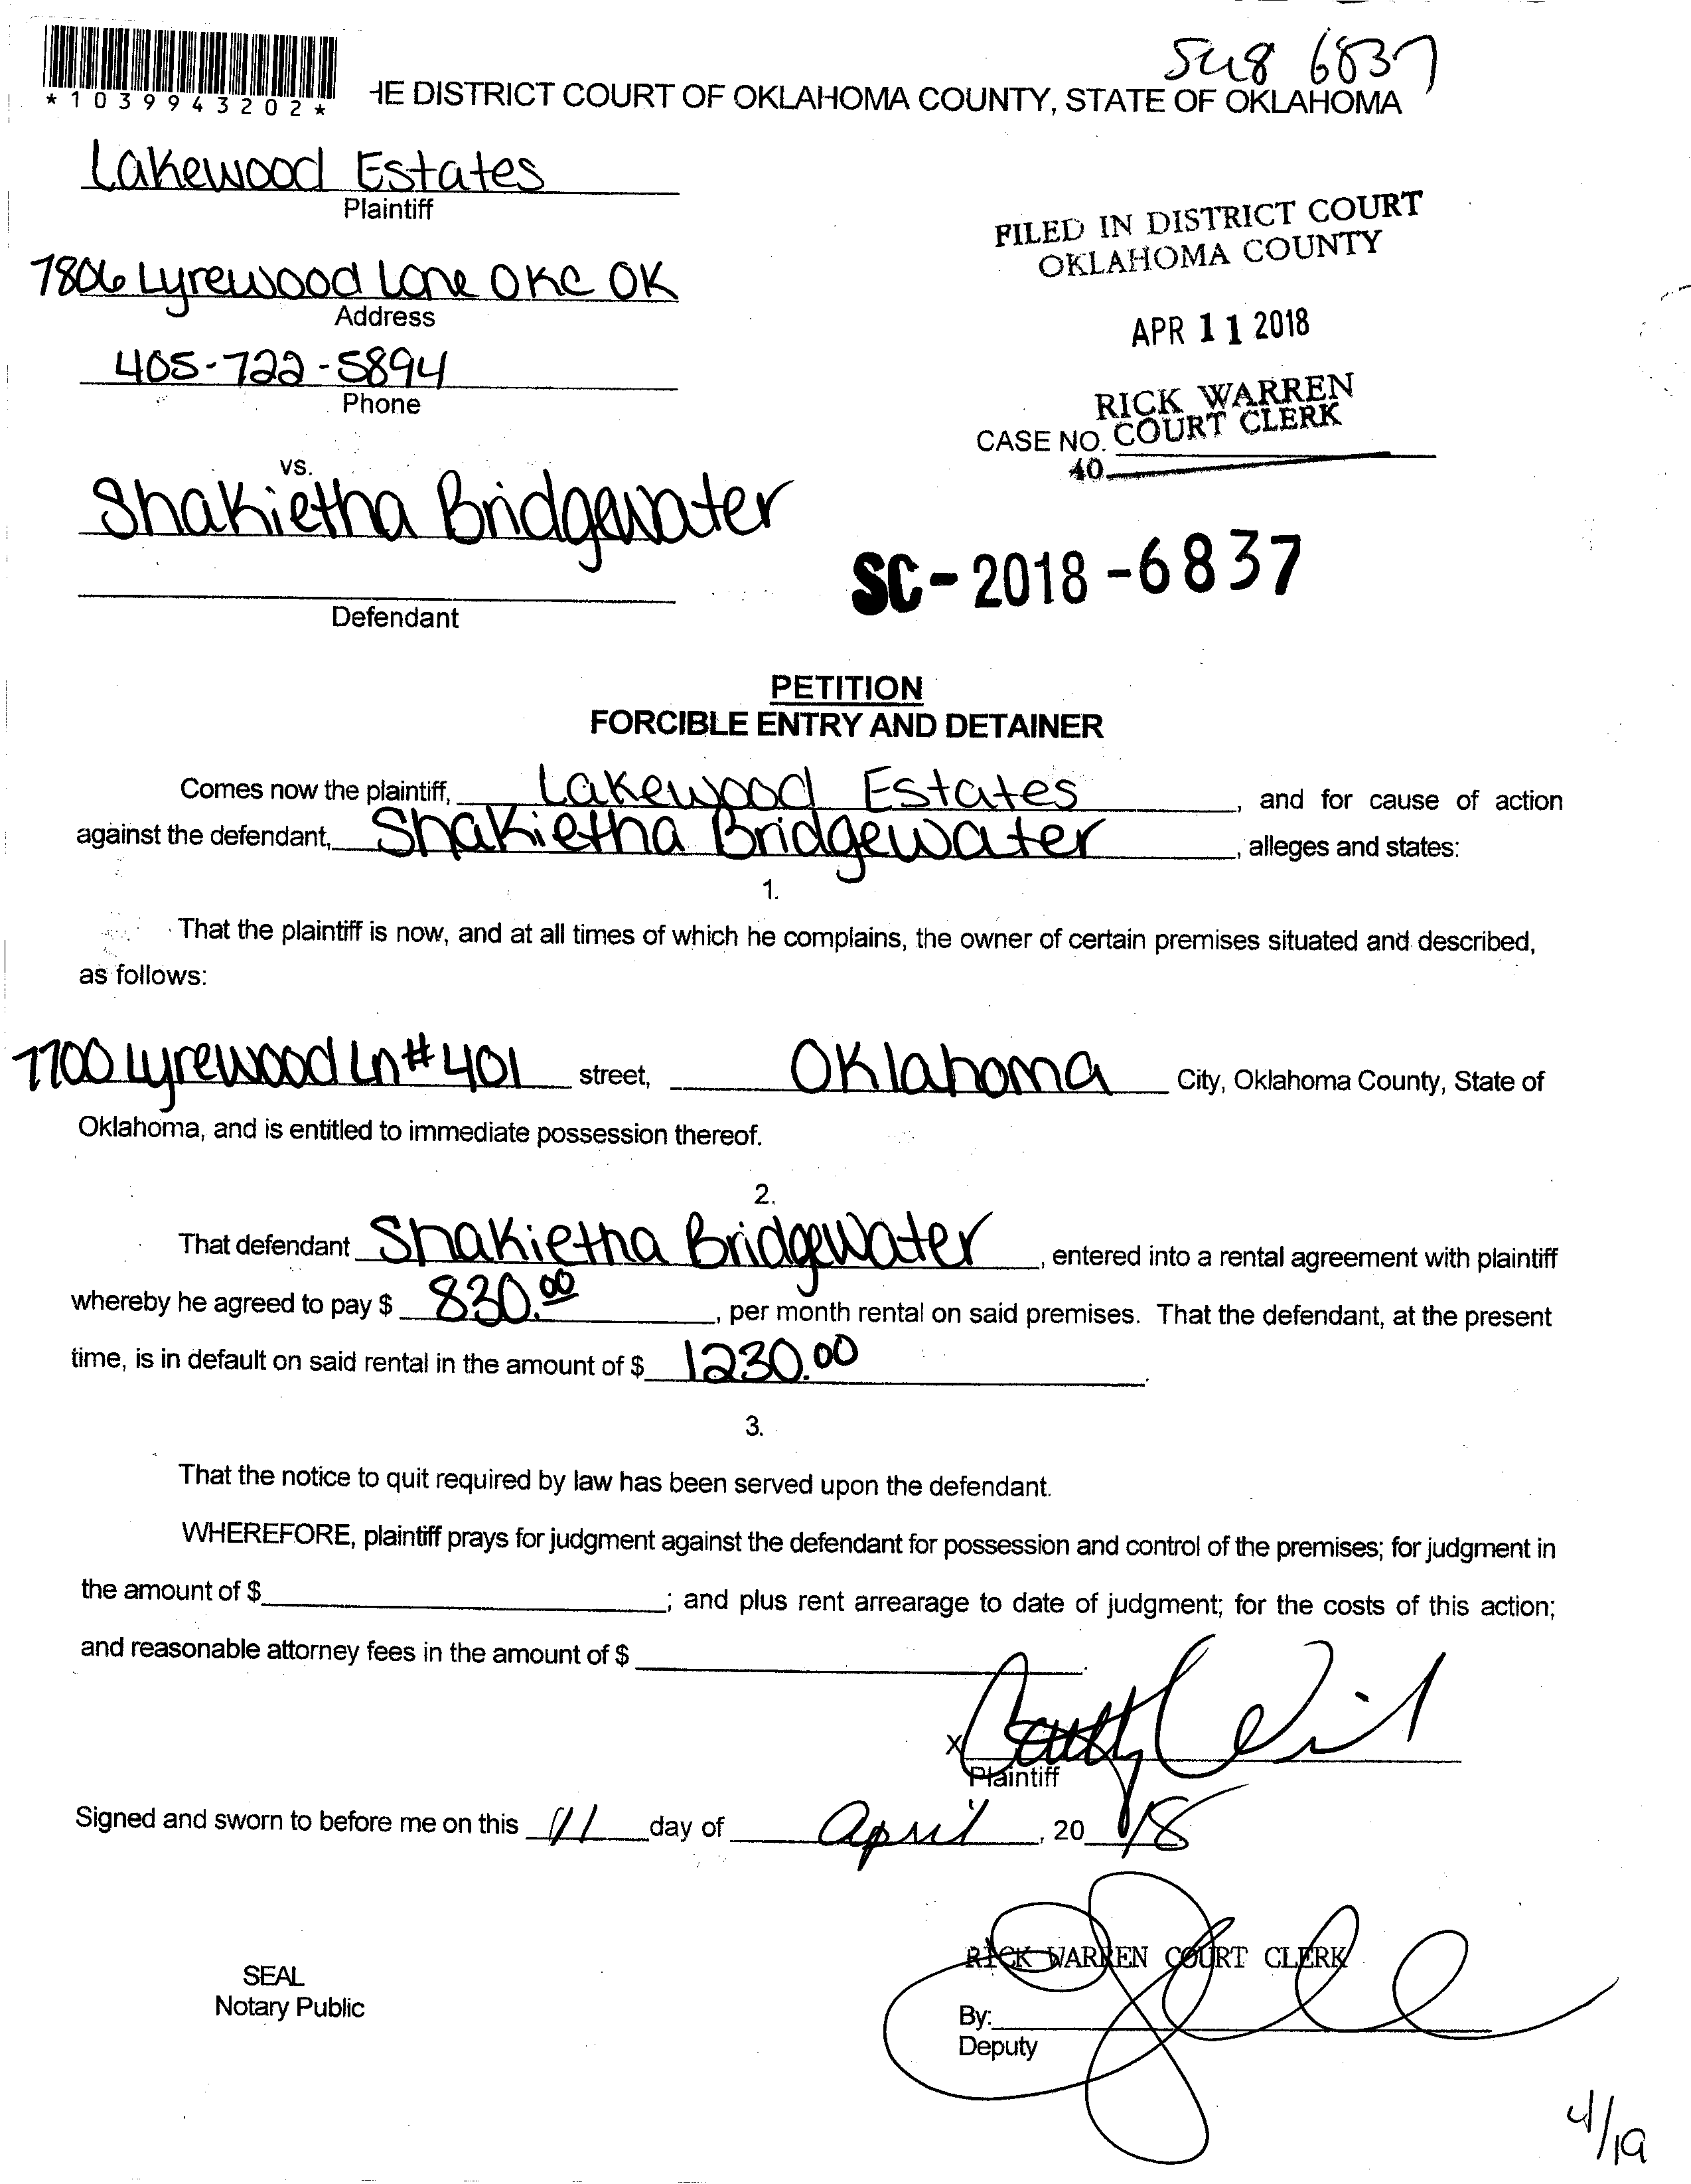 6837
*1039943202*
HE DISTRICT COURT OF OKLAHOMA COUNTY, STATE OF OKLAHOMA
Lakewood Estates
Plaintiff
FILED IN DISTRICT COURT
OKLAHOMA COUNTY
7806 Lyrewood Lane OKC OK
Address
APR 11 2018
405-722-5894
Phone
RICK WARREN
COURT CLERK
CASE NO.
40
vs.
Shakietha Bridgewater
SC-2018-6837
Defendant
PETITION
FORCIBLE ENTRY AND DETAINER
Comes now the plaintiff, Lakewood Estates, and for cause of action
against the defendant, Shakietha Bridgewater, alleges and states:
1.
That the plaintiff is now, and at all times of which he complains, the owner of certain premises situated and described,
as follows:
7700 Lyrewood Ln #401 street, Oklahoma City, Oklahoma County, State of
Oklahoma, and is entitled to immediate possession thereof.
2.
That defendant Shakietha Bridgewater, entered into a rental agreement with plaintiff
whereby he agreed to pay $ 830.00, per month rental on said premises. That the defendant, at the present
time, is in default on said rental in the amount of $ 1230.00.
3.
That the notice to quit required by law has been served upon the defendant.
WHEREFORE, plaintiff prays for judgment against the defendant for possession and control of the premises; for judgment in
the amount of $ ; and plus rent arrearage to date of judgment; for the costs of this action;
and reasonable attorney fees in the amount of $ .
X
Plaintiff
Signed and sworn to before me on this 11 day of April, 20 18
RICK WARREN COURT CLERK
SEAL
Notary Public
By:
Deputy
4/19